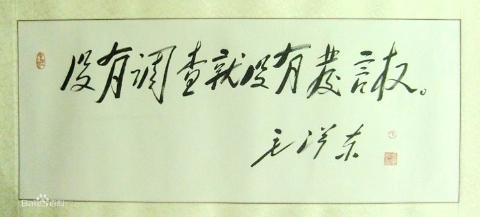 没有调查就没有發言权。
毛泽东
Baidu百科